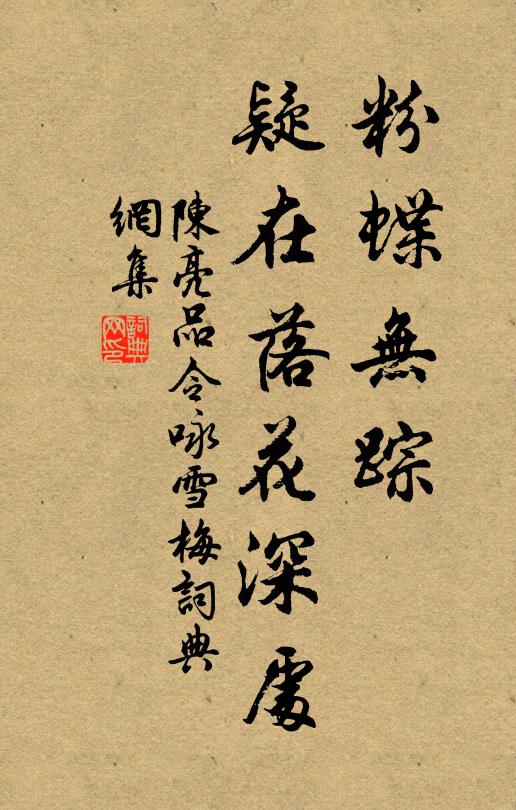 粉蝶無踪
疑在落花深處
陳亮品令咏雪梅詞典
網集
詞典
网印